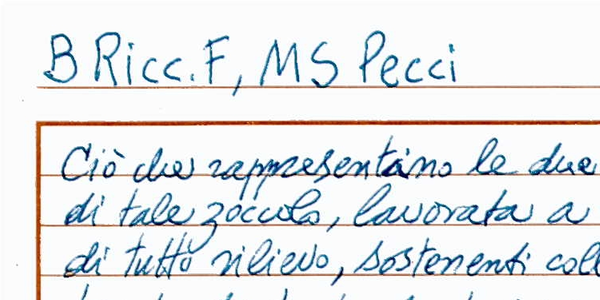 B Ricc. F, MS Pecci
Ciò che rappresentano le due
di tale zoccolo, lavorata a
di tutto rilievo, sostenenti coll